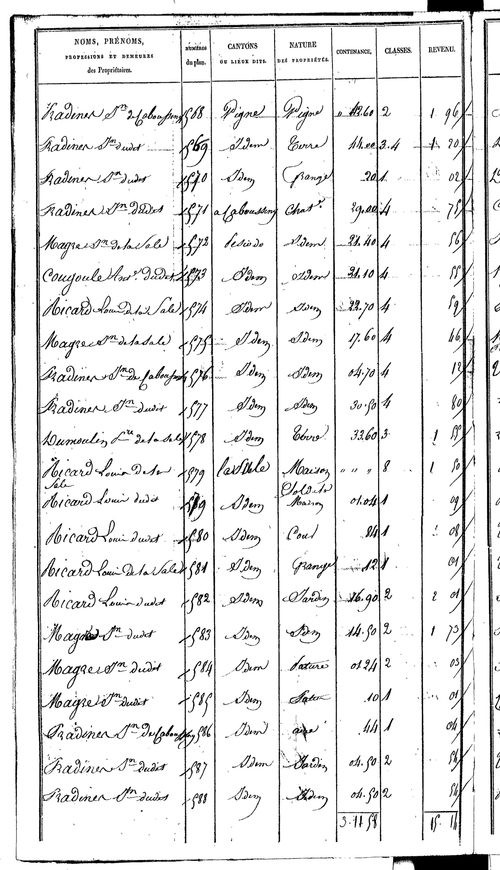 NOMS, PRÉNOMS, PROFESSIONS ET DEMEURES des Propriétaires. NUMÉROS du plan. CANTONS OU LIEUX DITS. NATURE DES PROPRIÉTÉS. CONTENANCE. CLASSES. REVENU.
Fradines Jn de Caboussens 568 Vigne Vigne 12.60 2 1 96
Fradines Jn dudit 569 Idem Terre 44.00 3.4 1 20
Fradines Jn dudit 570 Idem Grange .20 1 02
Fradines Jn dudit 571 a Caboussens Chat. 29.00 4 75
Magre Jn de la Sale 572 Idem 21.40 4 56
Cougoule dudit 573 Idem Idem 21.10 4 55
Ricard Louis de la Sale 574 Idem Idem 22.70 4 59
Magre Jn de la Sale 575 Idem Idem 17.60 4 46
Fradines Jn de Caboussens 576 Idem Idem 04.70 4 12
Fradines Jn dudit 577 Idem Idem 30.50 4 80
Dumoulin de la Sale 578 Idem Terre 33.60 3 1 55
Ricard Louis de la Sale 579 La Sale Maison " " " 8 1 50
Ricard Louis dudit Idem Sol de la Maison 01.04 1 09
Ricard Louis dudit 580 Idem Cour 84 1 08
Ricard Louis de la Sale 581 Idem Grange .12 1 01
Ricard Louis dudit 582 Idem Jardin 16.90 2 2 01
Magre Jn dudit 583 Idem Idem 14.50 2 1 73
Magre Jn dudit 584 Idem Pature 01.24 2 03
Magre Jn dudit 585 Idem .10 1 01
Fradines Jn de Caboussens 586 Idem aire .44 1 04
Fradines Jn dudit 587 Idem Jardin 04.50 2 54
Fradines Jn dudit 588 Idem Idem 04.50 2 54
3.11 58 15.14